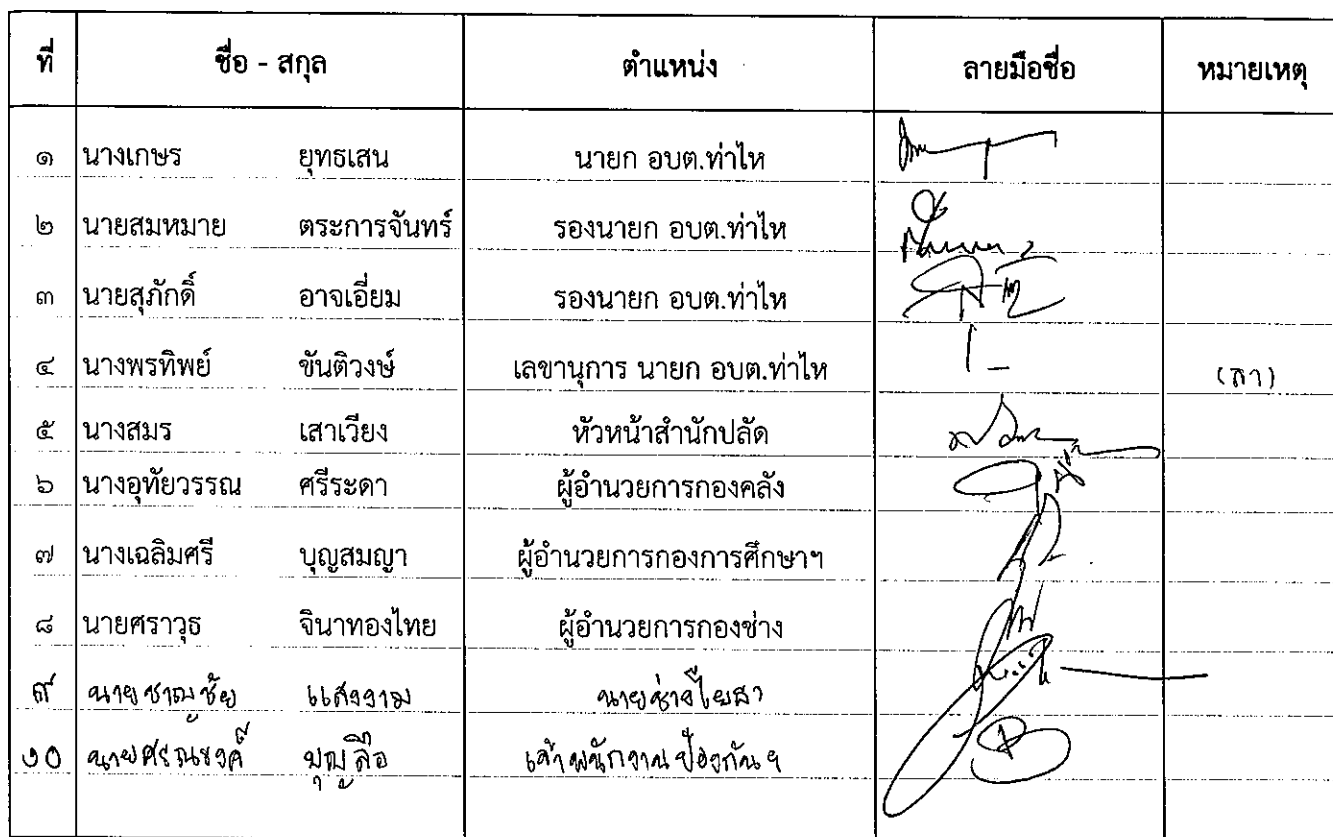 ที่ ชื่อ - สกุล ตำแหน่ง ลายมือชื่อ หมายเหตุ
๑ นางเกษร ยุทธเสน นายก อบต.ท่าไห
๒ นายสมหมาย ตระการจันทร์ รองนายก อบต.ท่าไห
๓ นายสุภักดิ์ อาจเอี่ยม รองนายก อบต.ท่าไห
๔ นางพรทิพย์ ขันติวงษ์ เลขานุการ นายก อบต.ท่าไห (ลา)
๕ นางสมร เสาเวียง หัวหน้าสำนักปลัด
๖ นางอุทัยวรรณ ศรีระดา ผู้อำนวยการกองคลัง
๗ นางเฉลิมศรี บุญสมญา ผู้อำนวยการกองการศึกษาฯ
๘ นายศราวุธ จินาทองไทย ผู้อำนวยการกองช่าง
๙ นายชาญชัย แสงงาม นายช่างโยธา
๑๐ นายศรณรงค์ บุญลือ เจ้าพนักงานป้องกันฯ